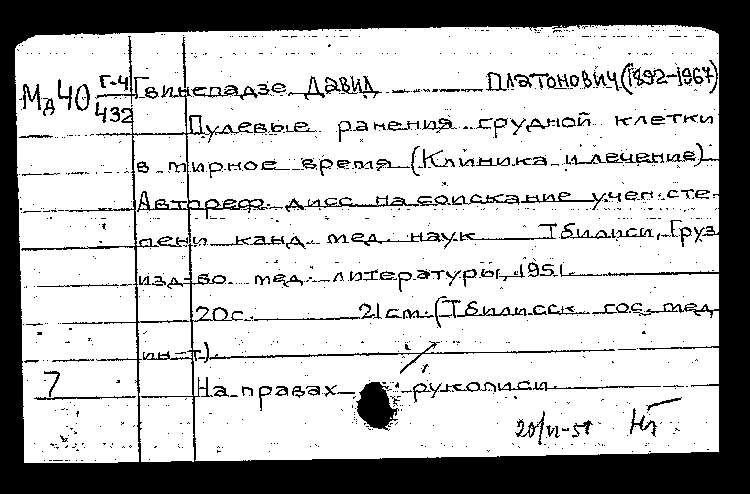 Мд40 Г-4/432 Гвинепадзе Давид Платонович (1892-1967)
Пулевые ранения грудной клетки
в мирное время (Клиника и лечение).
Автореф. дисс. на соискание учен. сте-
пени канд. мед. наук Тбилиси, Груз.
изд-во мед. литературы, 1951.
20с. 21см. (Тбилисск. гос. мед.
ин-т).
7 На правах рукописи